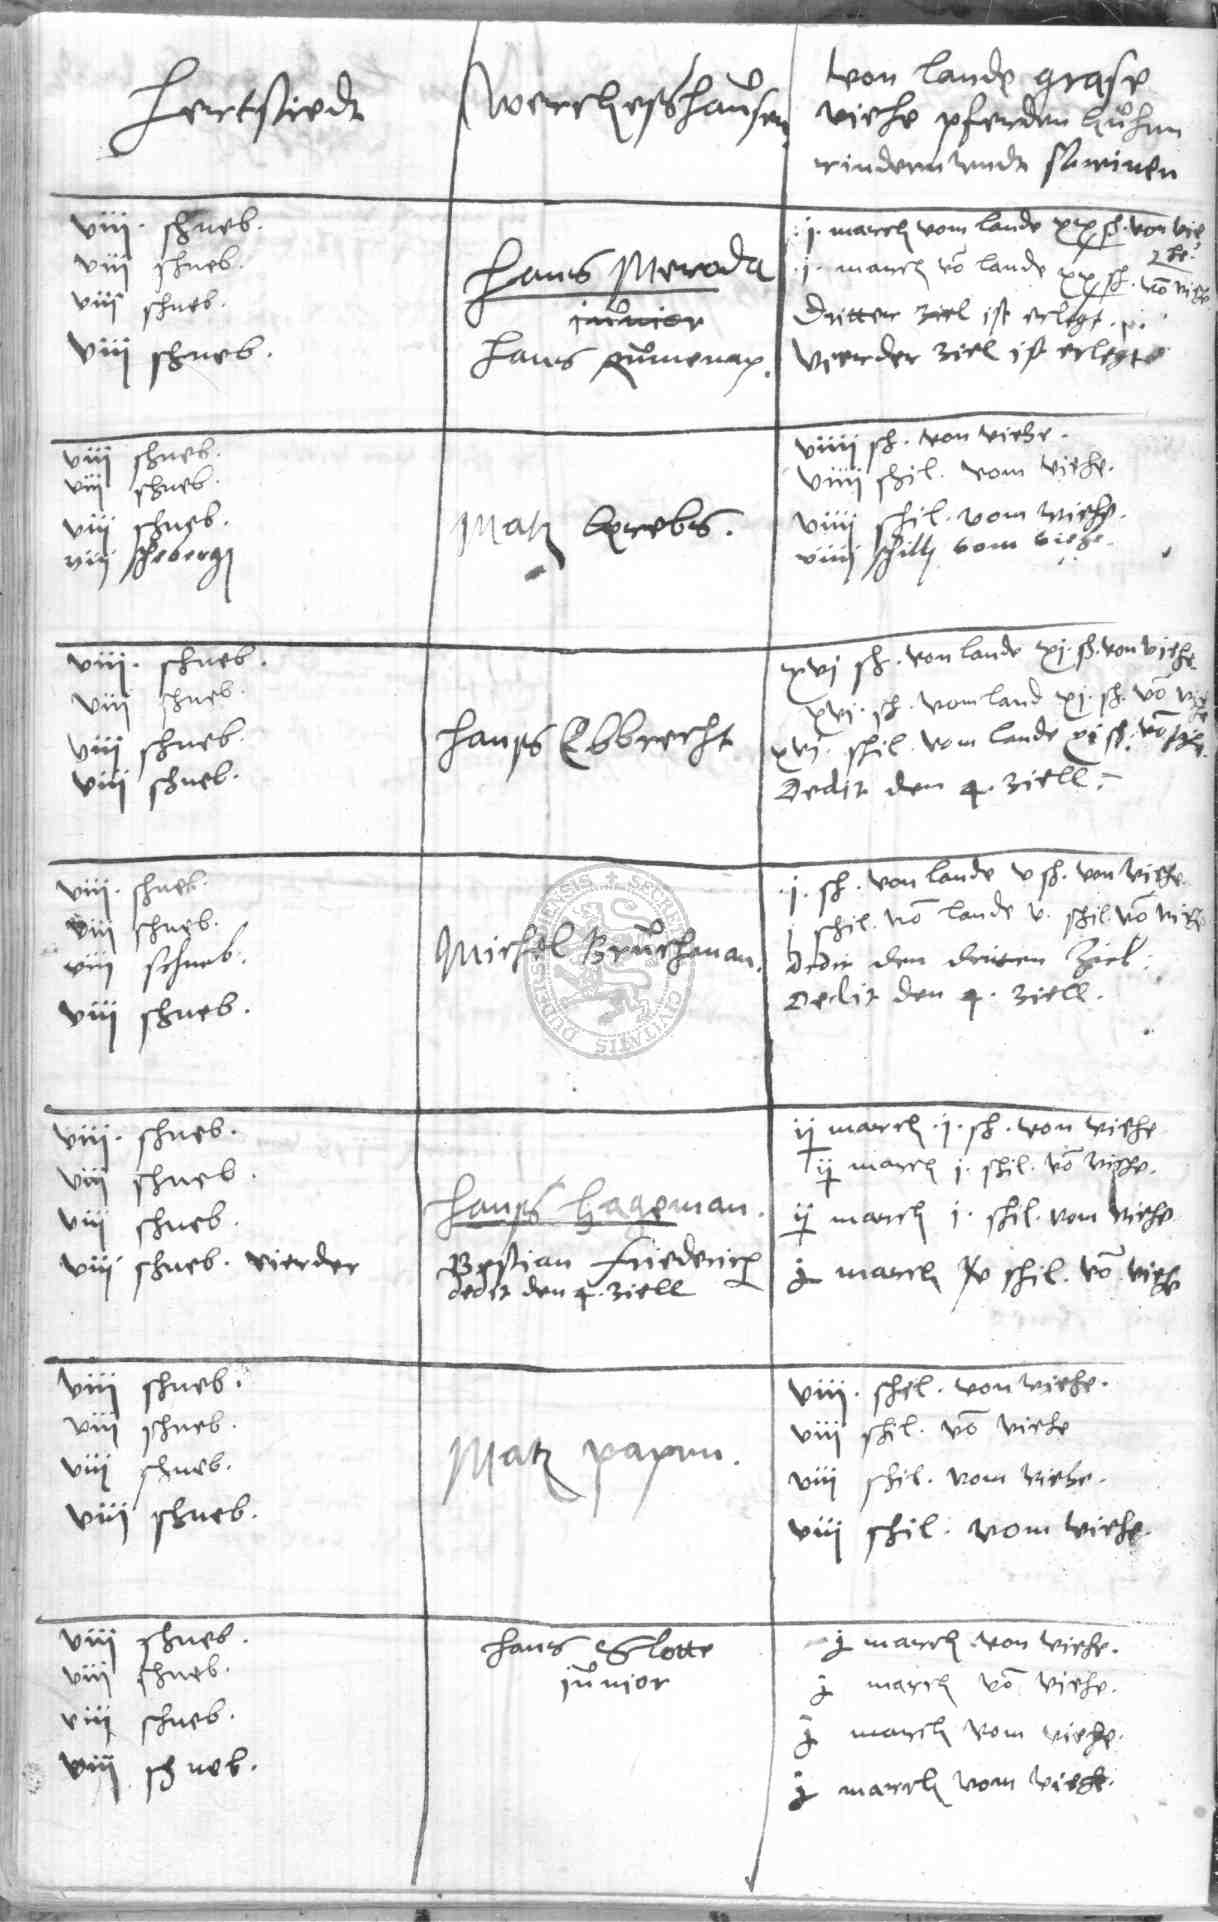 Hertstiedt
Werckesshausen
von lande grase
viehe pferden kuhen
rindern unndt schweinen
viii. schneb.
viii schneb.
viii schneb.
viii schneb.
Hans Meroda
junior
Hans
.j. march vom lande xx sch. von vie
he.
.j. march vo lande xx sch. vo viehe
Dritter ziel ist erlegt.
Vierder ziel ist erlegt
viii schneb.
viii schneb.
viii schneb.
viii
Matz Krebs.
viiii sch. von viehe.
viiii schil. vom viehe.
viiii schil. vom viehe.
viiii schill vom viehe.
viii. schneb.
viii schneb.
viii schneb.
viii schneb.
Hanss Ebbrecht
xvj sch. von lande xj. sch. von viehe
xvj. sch. vom land xj. sch. vo viehe
xvj. schil. vom lande xj sch. vo viehe.
Dedit den 4. ziell.
viii. schneb.
viii schneb.
viii schneb.
viii schneb.
Michel Bruchman.
.j. sch. von lande v sch. von viehe.
j schil. vo lande v. schil. vo viehe
Dedit den dritten Ziel.
Dedit den 4. ziell.
viii. schneb.
viii schneb.
viii schneb.
viii schneb. vierder
Hanss Hageman.
Bestian Friederich
dedit den 4. ziell
ij march .j. sch. von viehe
ij march j. schil. vo viehe.
ij march j. schil. von viehe
march schil. vo viehe
viii schneb.
viii schneb.
viii schneb.
viii schneb.
Matz papen.
viii. schil. von viehe.
viii schil. vo viehe
viii schil. vom viehe.
viii schil. vom viehe.
viii schneb.
viii schneb.
viii schneb.
viii schneb.
Hans Slotte
junior
j march von viehe.
j march vo viehe.
j march vom viehe.
j march vom viehe.